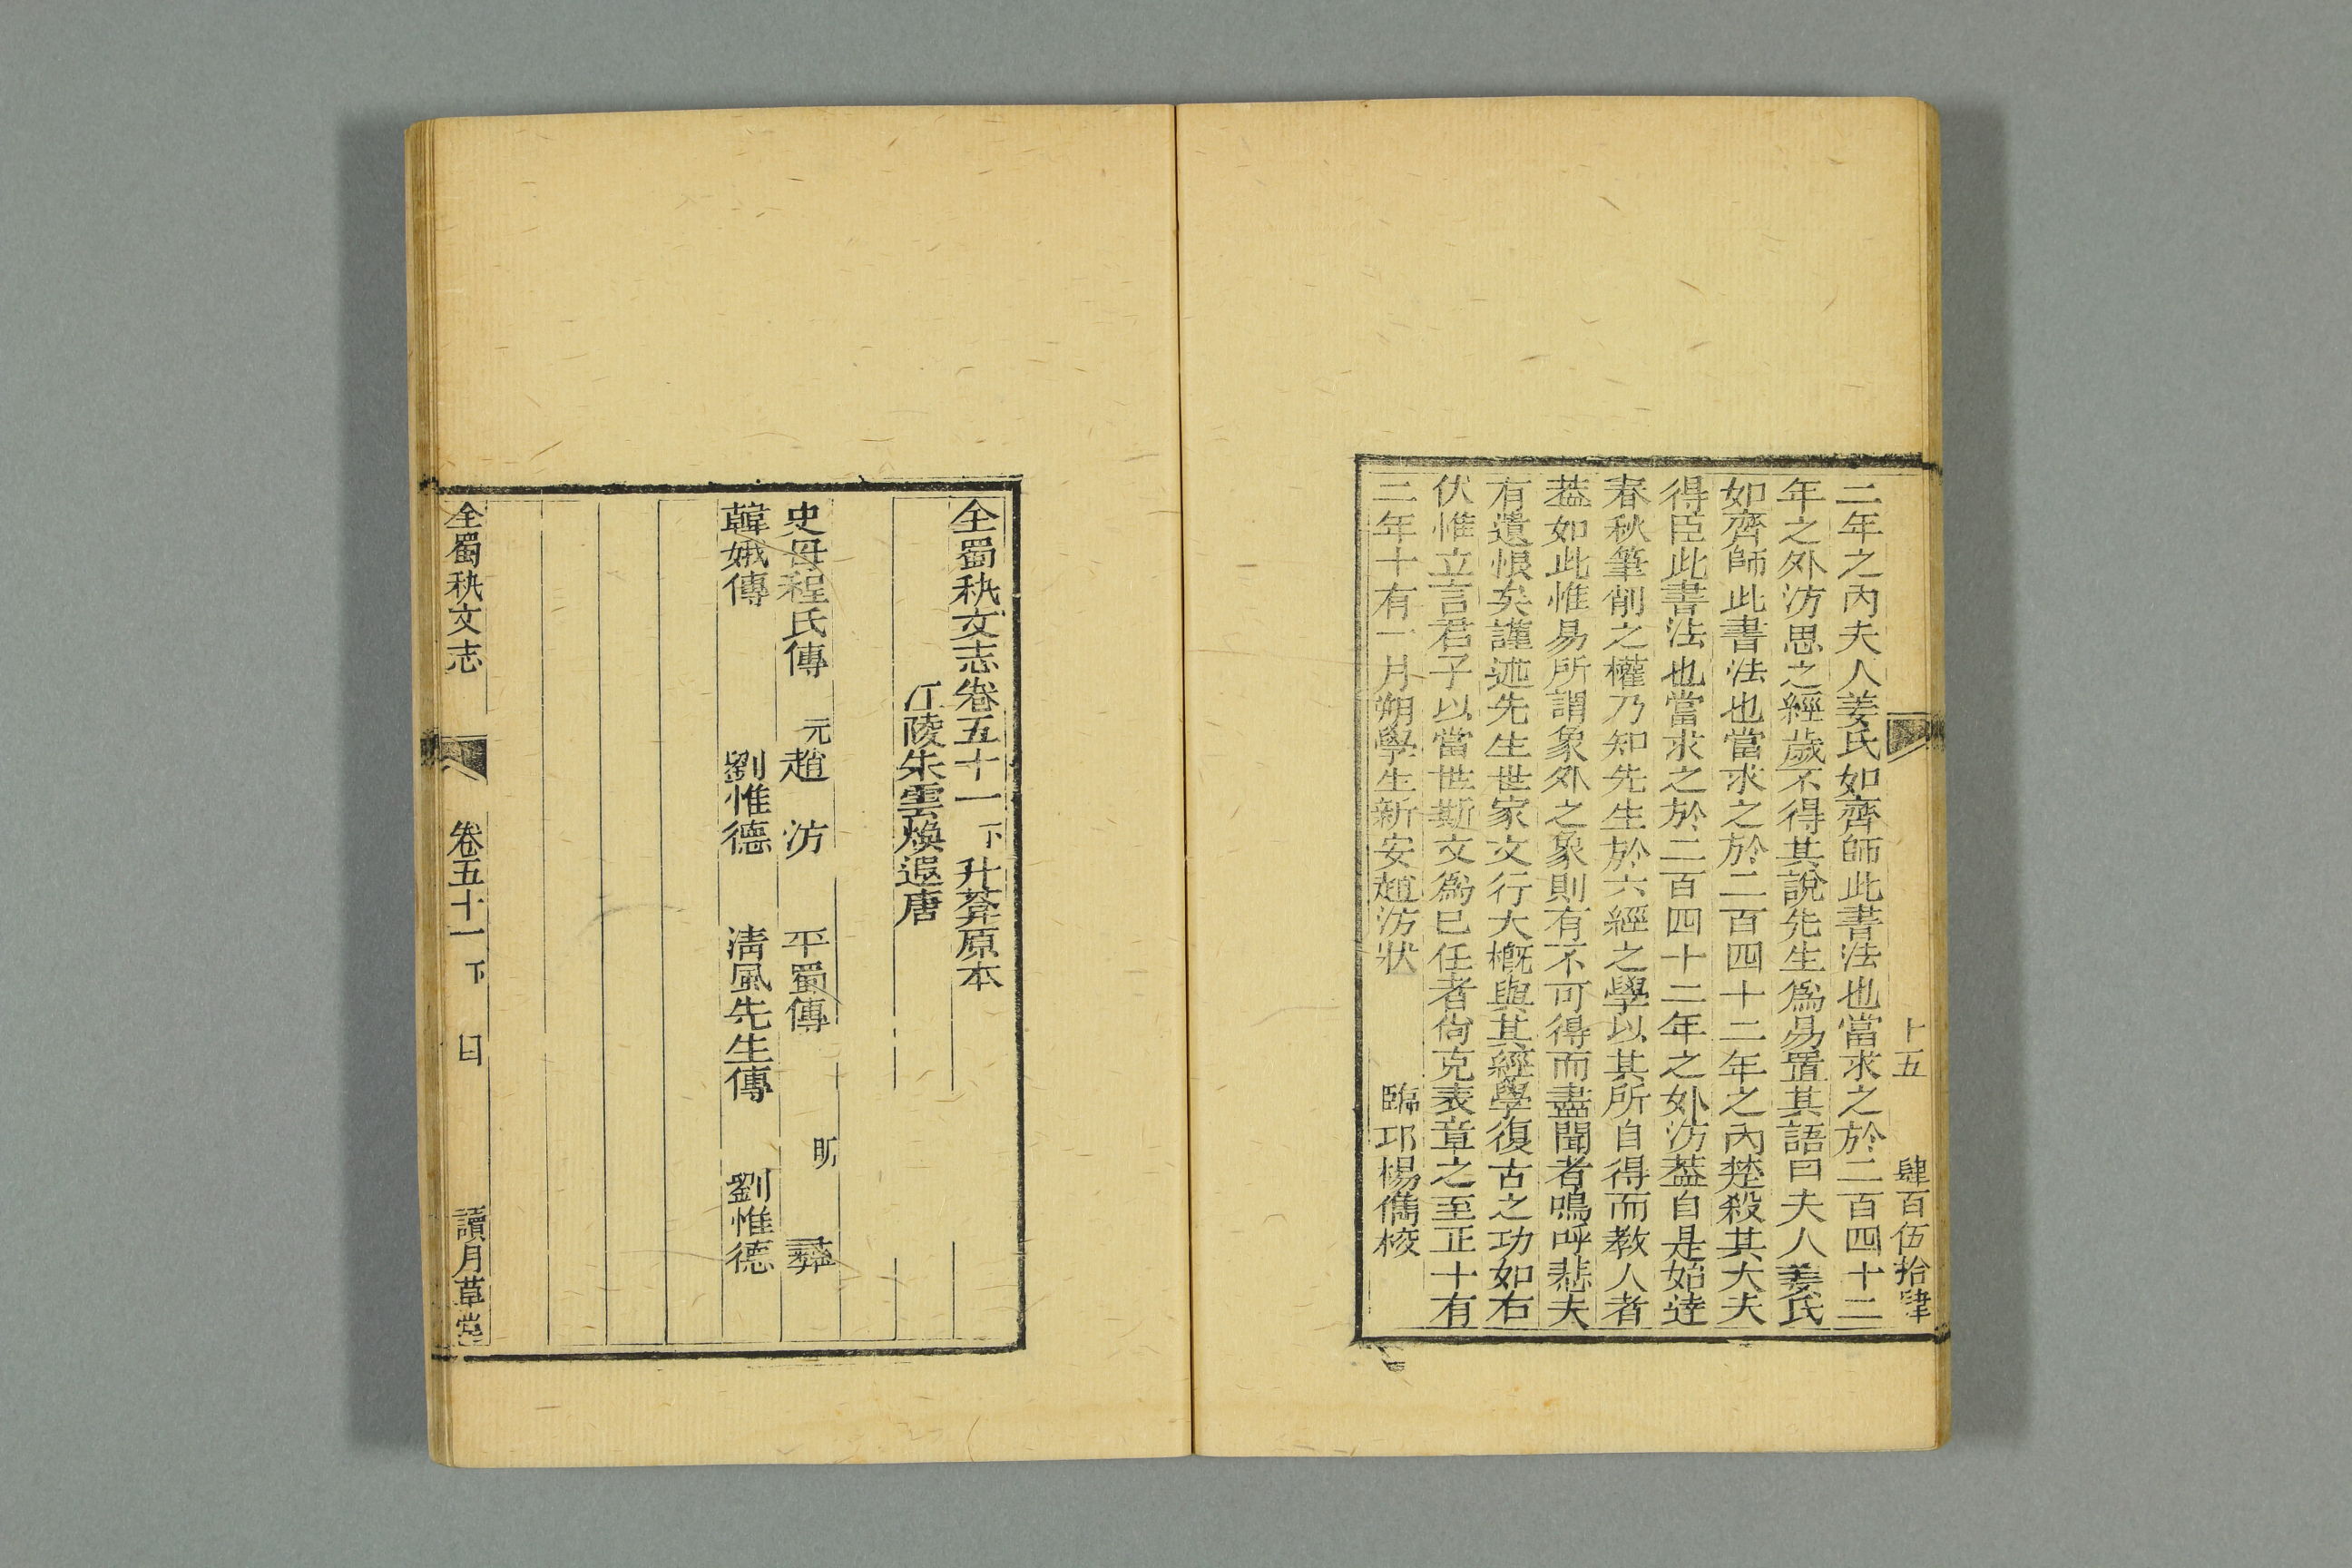 十五　肆百伍拾肆
二年之內夫人姜氏如齊師此書法也當求之於二百四十二
年之外汸思之經歲不得其說先生爲易置其語曰夫人姜氏
如齊師此書法也當求之於二百四十二年之內楚殺其大夫
得臣此書法也當求之於二百四十二年之外汸葢自是始達
春秋筆削之權乃知先生於六經之學以其所自得而教人者
葢如此惟易所謂象外之象則有不可得而盡聞者嗚呼悲夫
有遺恨矣謹述先生世家文行大槪與其經學復古之功如右
伏惟立言君子以當世斯文爲已任者尙克表章之至正十有
二年十有一月朔學生新安趙汸狀　臨邛楊儁校
全蜀秇文志卷五十一下　升菴原本
江陵朱雲煥遐唐
史母程氏傳　元趙　汸　平蜀傳　明　　彝
韓娥傳　劉惟德　淸風先生傳　劉惟德
全蜀秇文志　卷五十一下　目　讀月草堂